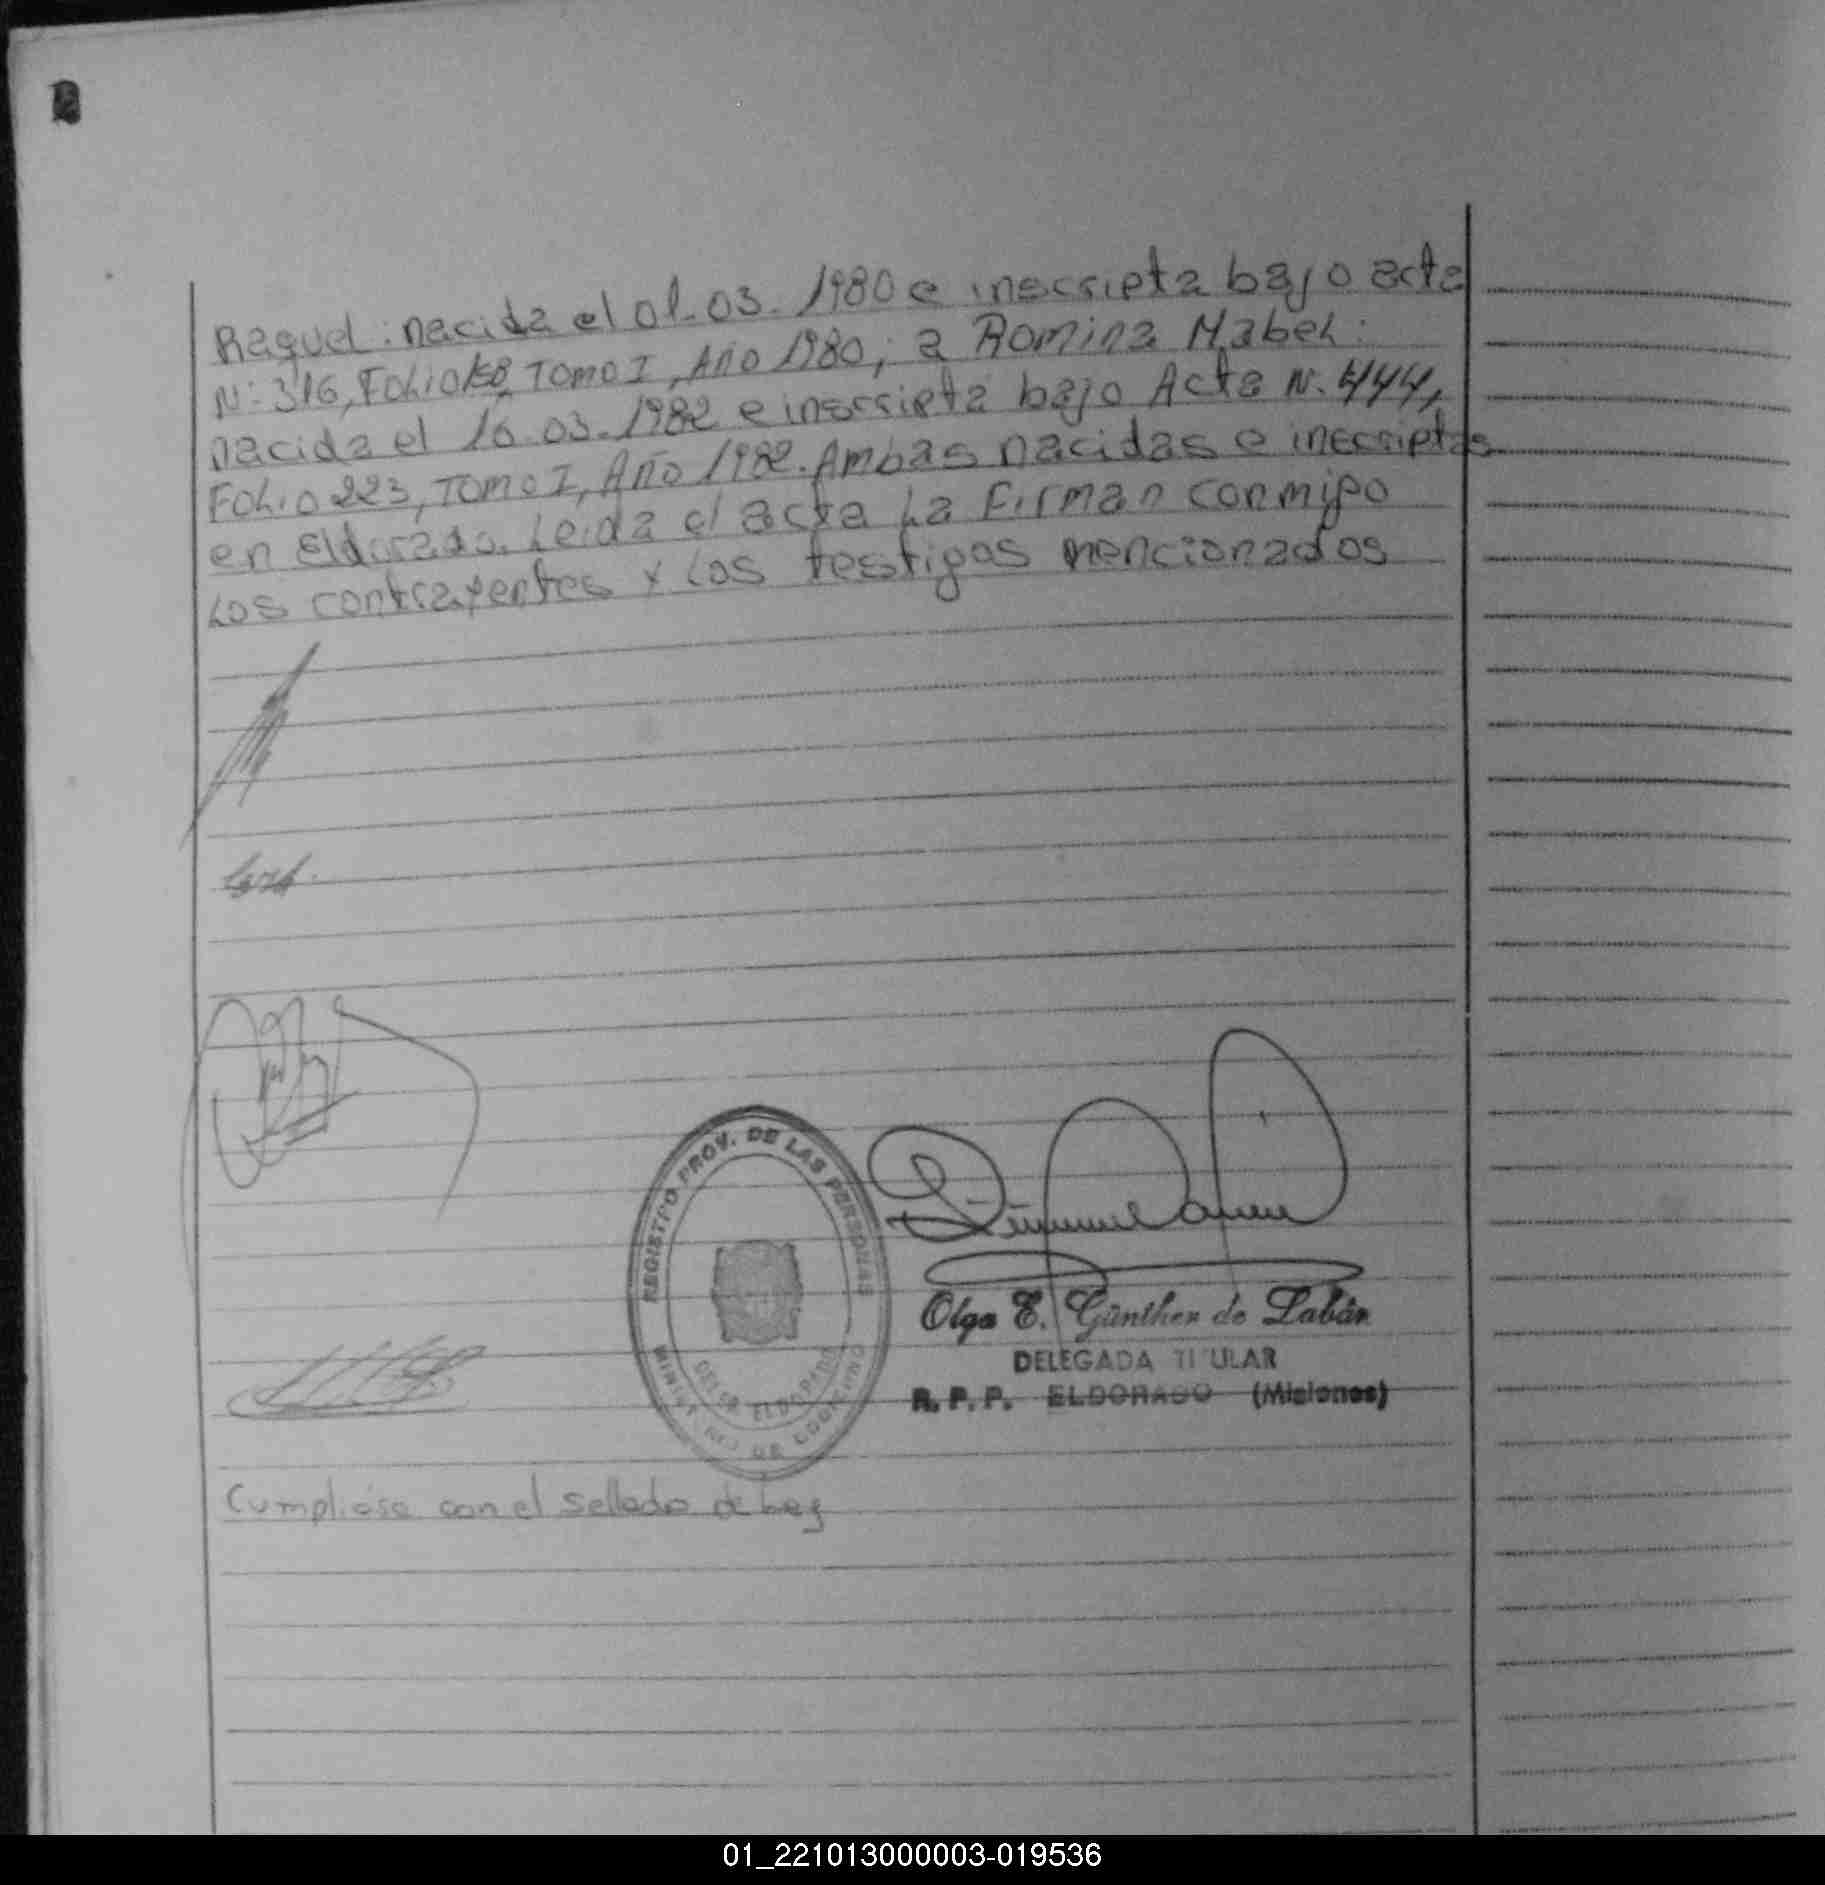 Raquel: nacida el 01.03.1980 e inscripta bajo acta
N: 316, Folio 158, Tomo I, Año 1980; a Romina Mabel:
nacida el 16.03.1982 e inscripta bajo Acta N. 444,
Folio 223, Tomo I, Año 1982. Ambas nacidas e inscriptas
en Eldorado. Leida el acta La Firman conmigo
Los contrayentes y Los testigos mencionados
REGISTRO PROV. DE LAS PERSONAS
ELDORADO
MINISTERIO DE GOBIERNO
Olga E. Günther de Labán
DELEGADA TITULAR
R. P. P. ELDORADO (Misiones)
Cumplióse con el sellado de ley
01_221013000003-019536